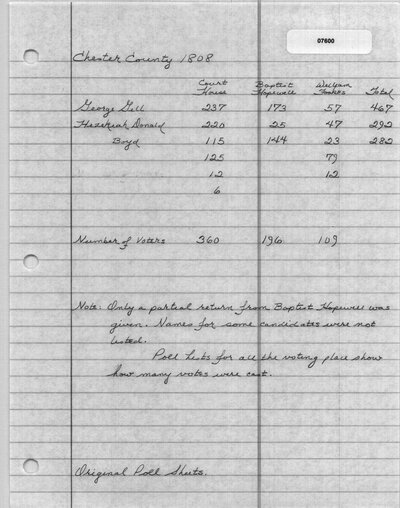 07600
Chester County 1808
Court House Baptist Hopewell William Total
George Gill 237 173 57 467
Hezekiah Donald 220 25 47 292
Boyd 115 144 23 282
125 79
12 12
6
Number of Voters 360 196 109
Note: Only a partial return from Baptist Hopewell was
given. Names for some candidates were not
listed.
Poll lists for all the voting place show
how many votes were cast.
Original Poll Sheets.